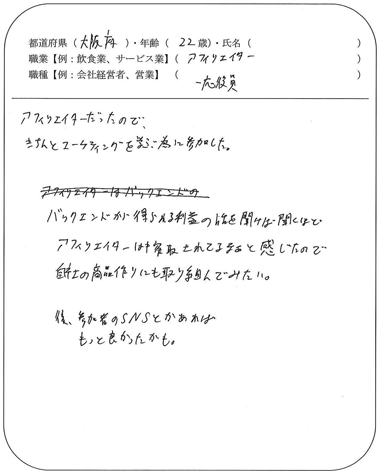 都道府県（大阪府）・年齢（22歳）・氏名（　　　　　）
職業【例：飲食業、サービス業】（アフィリエイター　　　）
職種【例：会社経営者、営業】（一応役員　　　）
アフィリエイターだったので、
きちんとマーケティングを学ぶ為に参加した。
アフィリエイターはバックエンドの
バックエンドから得られる利益の話を聞けば聞くほど
アフィリエイターは搾取されてるなぁと感じたので
自社の商品作りにも取り組んでみたい。
後、参加者のSNSとかあれば
もっと良かったかも。